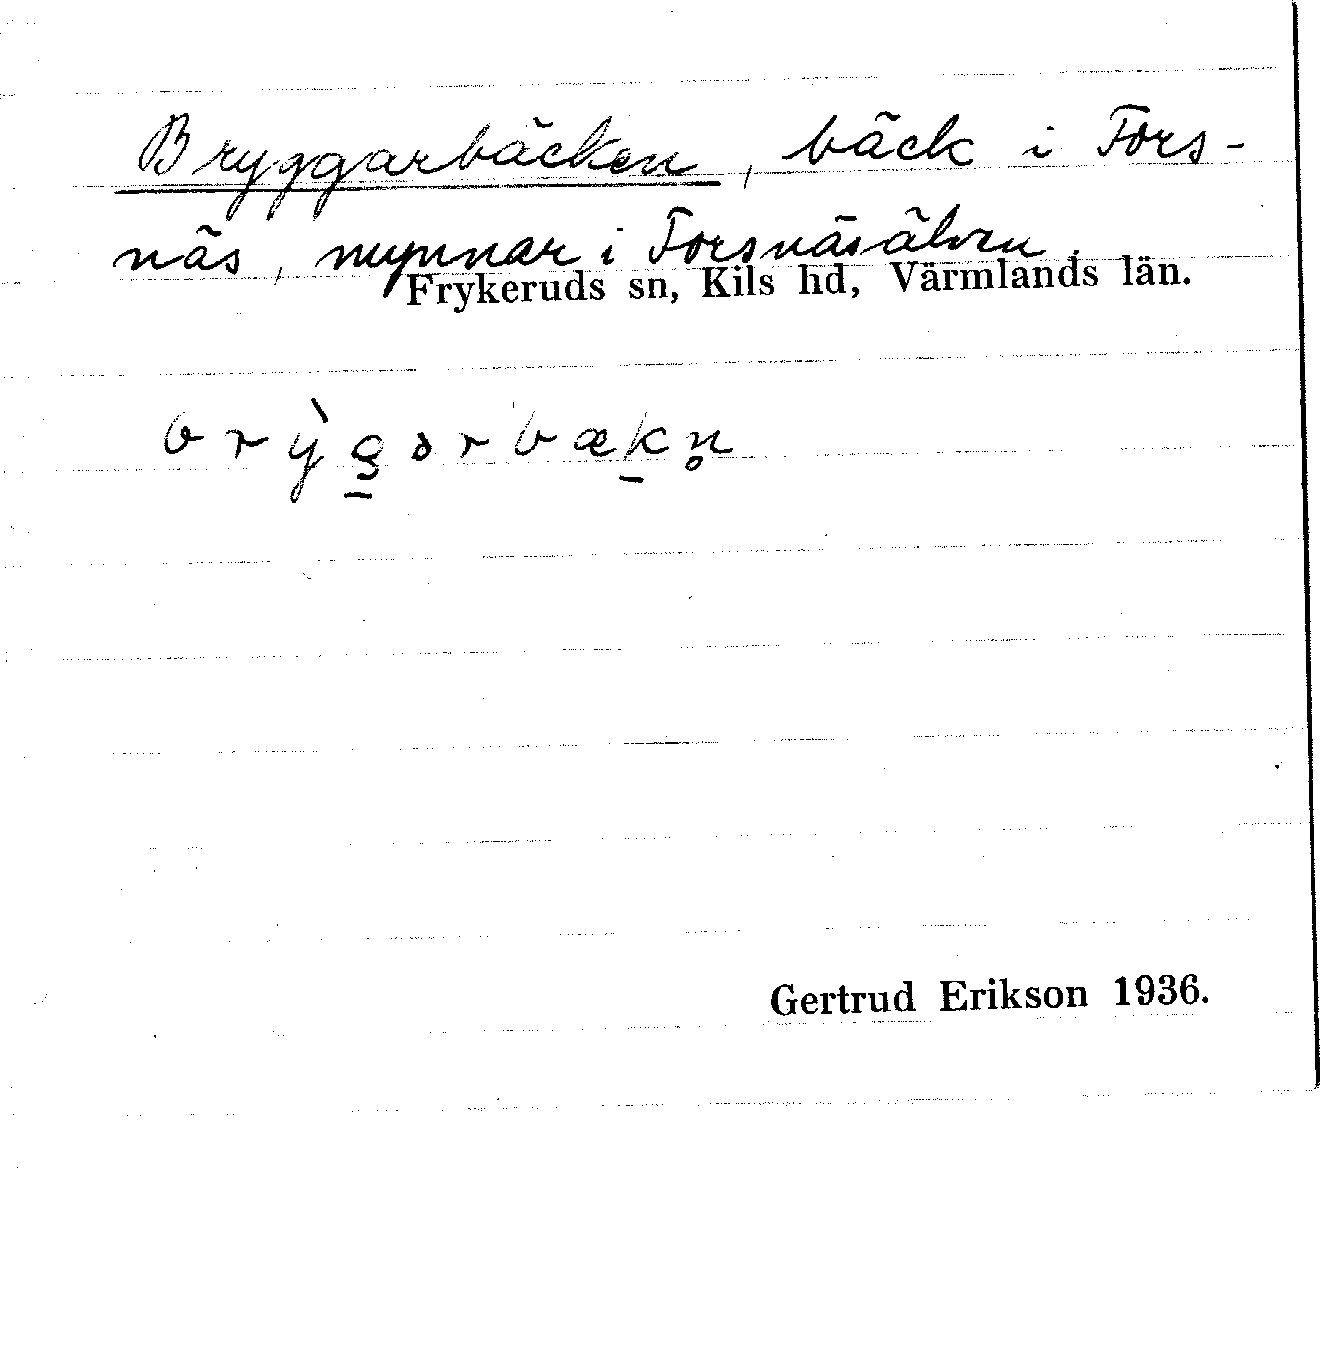 Bryggarbäcken, bäck i Fors-
näs, mynnar i Forsnäsälven.
Frykeruds sn, Kils hd, Värmlands län.
brỳg̱ərbæḵn̥
Gertrud Erikson 1936.